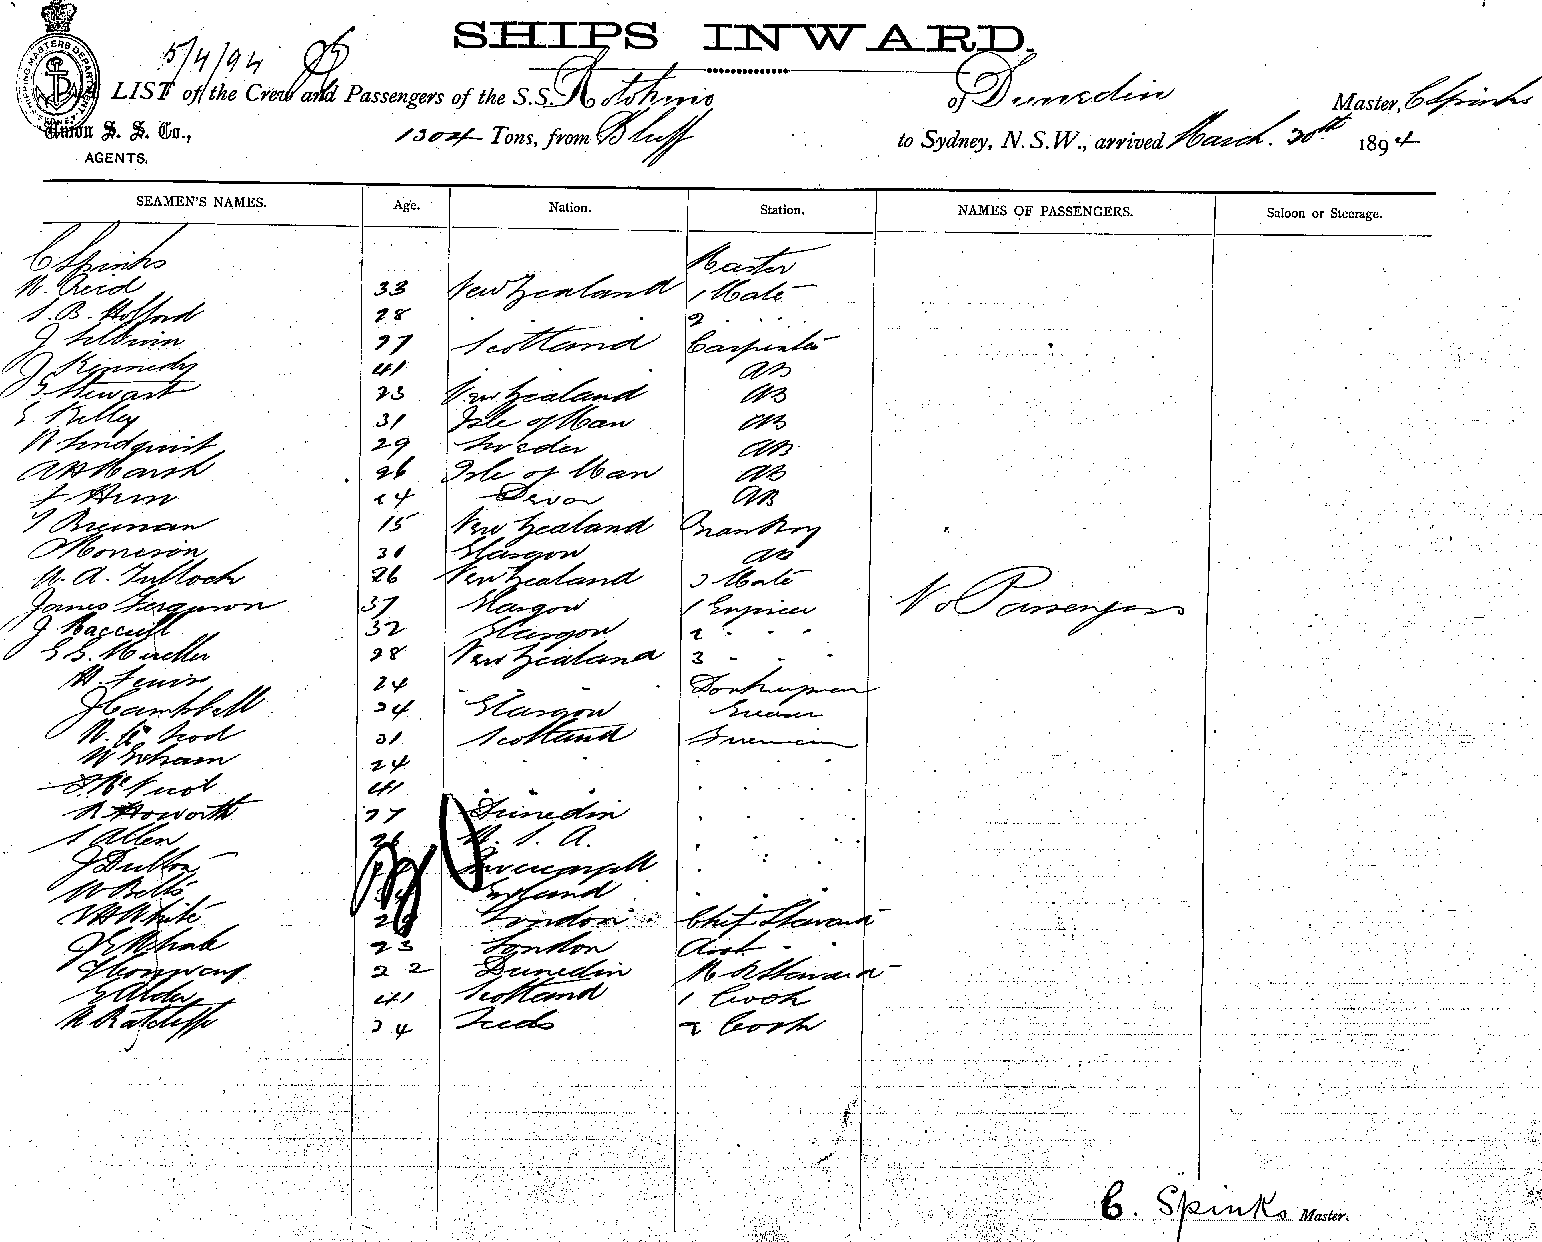 SHIPS INWARD.
5/4/94
LIST of the Crew and Passengers of the S.S. Rotokino of Dunedin Master, C Spinks
Union S. S. Co., 1304 Tons, from Bluff to Sydney, N.S.W., arrived March. 30th 1894
AGENTS.
SEAMEN'S NAMES. Age. Nation. Station. NAMES OF PASSENGERS. Saloon or Steerage.
C Spinks Master
W. Reid 33 New Zealand 1 Mate
S. B. Holford 28 . . 2 . .
J 27 Scotland Carpenter
J Kennedy 41 AB
G Stewart 23 New Zealand AB
E Kelley 31 Isle of Man AB
N Lindquist 29 Sweden AB
A H Marsh 26 Isle of Man AB
24 Devon AB
Brennan 15 New Zealand
Morrison 30 Glasgow AB
W. A. Tulloch 26 New Zealand 3 Mate
James Ferguson 37 Glasgow 1 Engineer No Passengers
J 32 Glasgow 2 " " "
28 New Zealand 3 - - -
H. Lewis 24 . . Donkeyman
J Campbell 24 Glasgow Greaser
31 Scotland Firemen
W Graham 24 . . . .
41 . . . .
R Howorth 27 Dunedin . . .
S Allen 26 . . .
J Dutton Invercargill . . .
W Betts England . . .
White 29 London Chief Steward
23 London Asst - -
Conway 22 Dunedin M R Steward
G Alder 41 Scotland 1 Cook
R Ratcliffe 24 Leeds 2 Cook
C. Spinks Master.